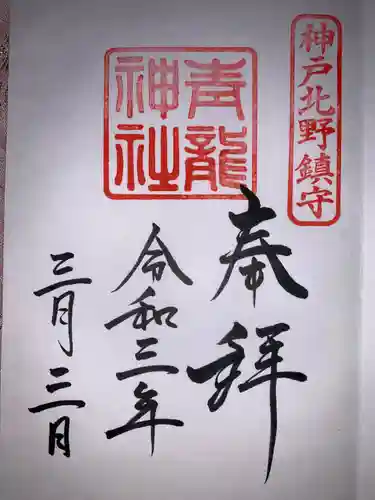 神戸北野鎮守
青龍
神社
奉拝
令和三年
三月三日